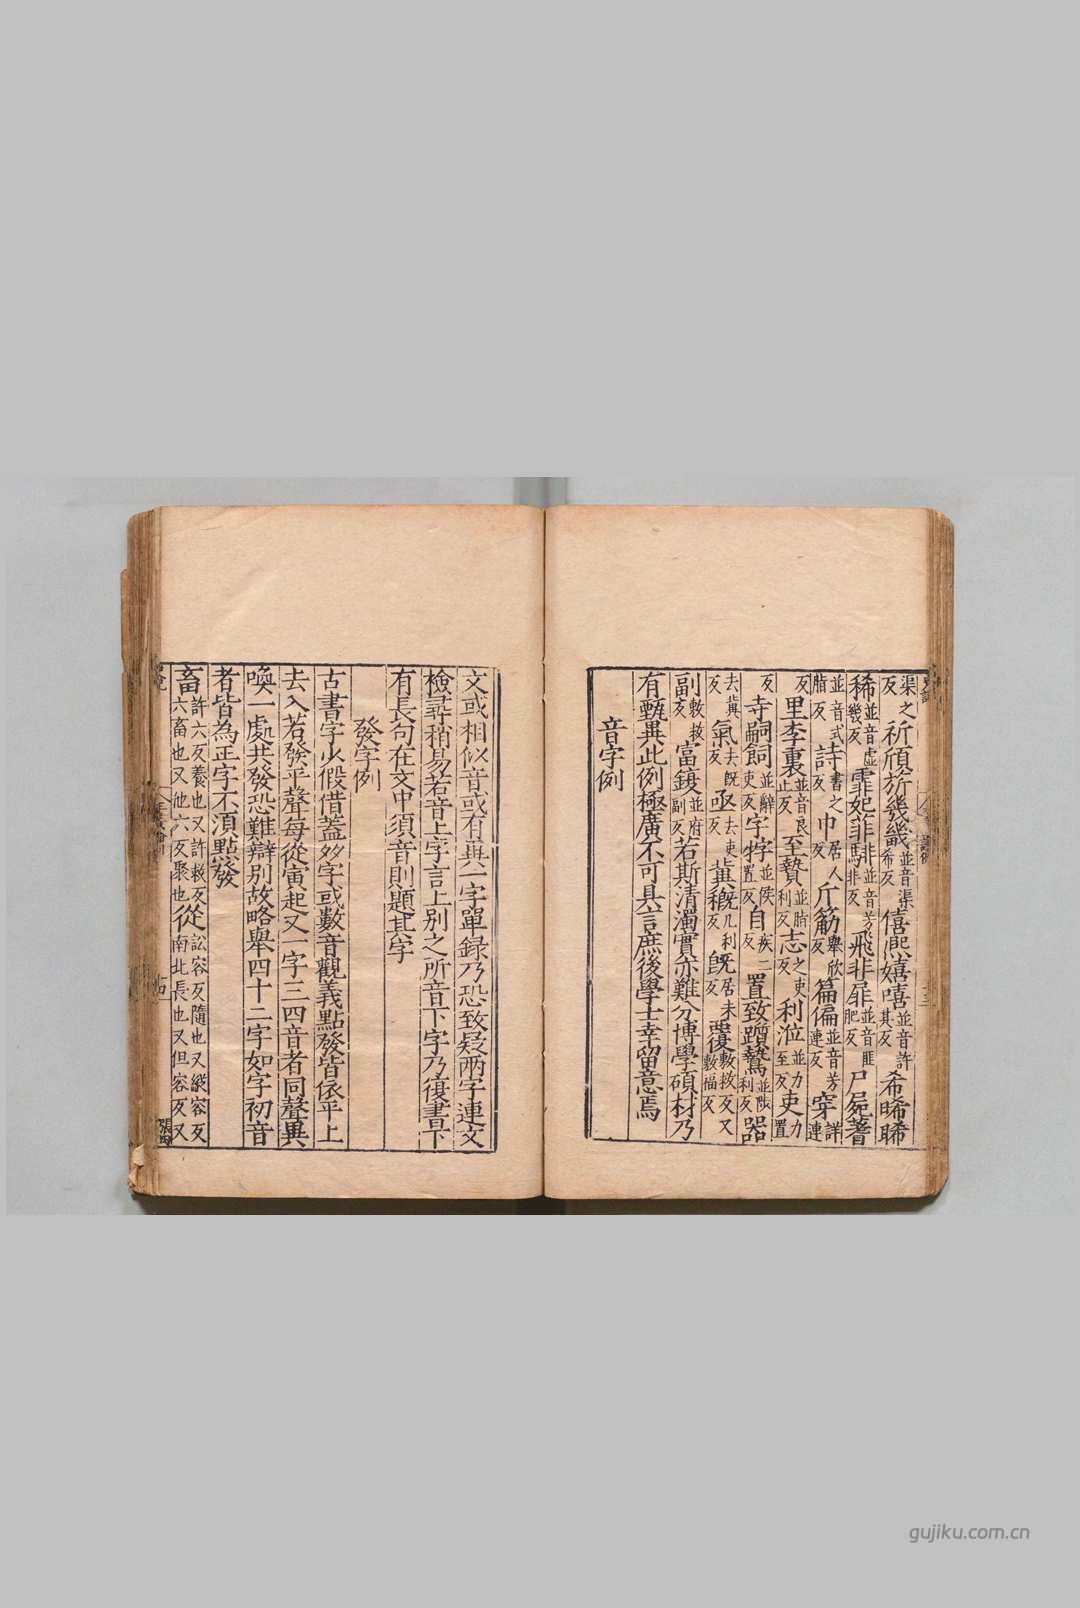 渠之反祈頎旂幾畿並音渠希反僖熙嬉嘻並音許其反希晞睎
稀並音虛幾反霏妃菲騑並音芳非反飛非扉並音匪肥反尸屍蓍
並音式脂反詩書之反巾居人反斤筋舉欣反篇偏並音芳連反穿詳連
反里李裏並音良止反至贄並脂利反志之吏反利涖並力至反吏力置
反寺嗣飼並辭吏反字牸並疾置反自疾二反置致躓鷙並陟利反器
去冀反氣去旣反亟去吏反冀穊几利反旣居未反覆敷救反又敷福反
副敷救反富鍑並府副反若斯清濁實亦難分博學碩材乃
有甄異此例極廣不可具言庶後學士幸留意焉
音字例
文或相似音或有異一字單録乃恐致疑兩字連文
檢尋稍易若音上字言上別之所音下字乃復書下
有長句在文中須音則題其字
發字例
古書字少假借蓋多字或數音觀義點發皆依平上
去入若發平聲每從寅起又一字三四音者同聲異
喚一處共發恐難辯別故略舉四十二字如字初音
者皆為正字不須點發
畜許六反養也又許救反六畜也又他六反聚也從訟容反隨也又縱容反南北長也又但容反又
gujiku.com.cn